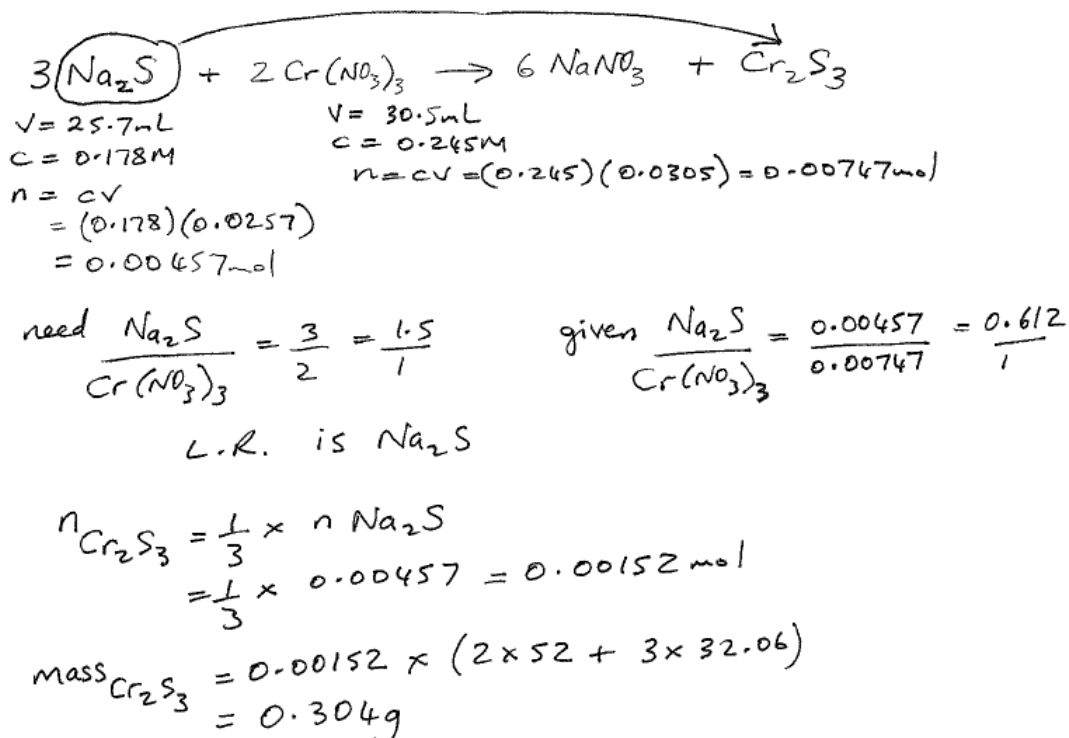 3 Na₂S + 2 Cr(NO₃)₃ → 6 NaNO₃ + Cr₂S₃
V = 25.7mL
c = 0.178M
n = cv
= (0.178)(0.0257)
= 0.00457mol
V = 30.5mL
c = 0.245M
n = cv = (0.245)(0.0305) = 0.00747mol
need Na₂S / Cr(NO₃)₃ = 3/2 = 1.5/1
given Na₂S / Cr(NO₃)₃ = 0.00457/0.00747 = 0.612/1
L.R. is Na₂S
n Cr₂S₃ = 1/3 × n Na₂S
= 1/3 × 0.00457 = 0.00152 mol
mass Cr₂S₃ = 0.00152 × (2×52 + 3×32.06)
= 0.304g